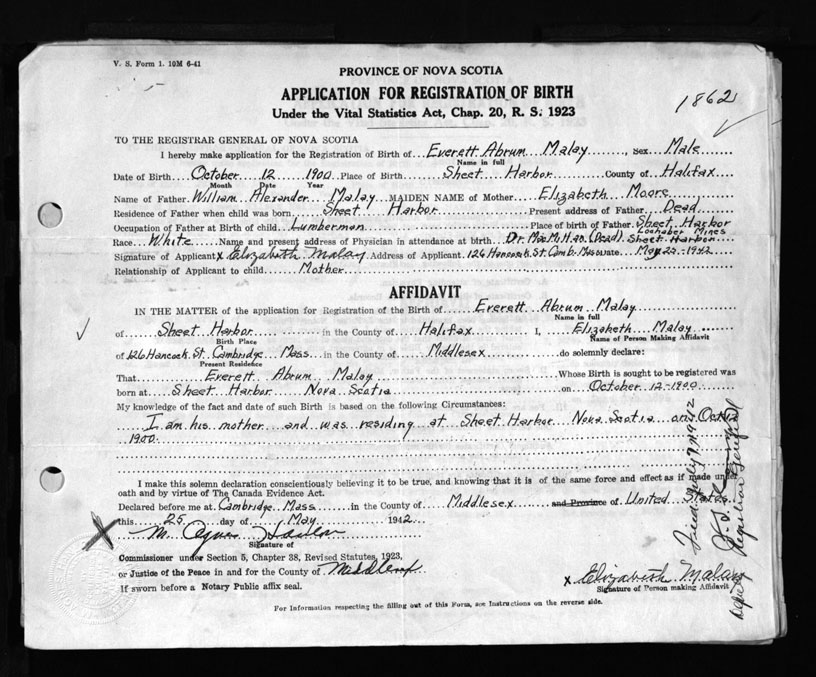 V. S. Form 1. 10M 6-41
PROVINCE OF NOVA SCOTIA
APPLICATION FOR REGISTRATION OF BIRTH
Under the Vital Statistics Act, Chap. 20, R. S. 1923
1862
TO THE REGISTRAR GENERAL OF NOVA SCOTIA
I hereby make application for the Registration of Birth of Everett Abrum Malay, Sex Male
Name in full
Date of Birth October 12 1900 Place of Birth Sheet Harbor County of Halifax
Month Date Year
Name of Father William Alexander Malay MAIDEN NAME of Mother Elizabeth Moore
Residence of Father when child was born Sheet Harbor Present address of Father Dead
Occupation of Father at Birth of child Lumberman Place of birth of Father Sheet Harbor
Lochaber Mines
Race White Name and present address of Physician in attendance at birth Dr. MacMillan (Dead) Sheet Harbor
Signature of Applicant x Elizabeth Malay Address of Applicant 126 Hancock St. Camb. Mass Date May 25-1942
Relationship of Applicant to child Mother
AFFIDAVIT
IN THE MATTER of the application for Registration of the Birth of Everett Abrum Malay
Name in full
of Sheet Harbor in the County of Halifax I, Elizabeth Malay
Birth Place Name of Person Making Affidavit
of 126 Hancock St. Cambridge Mass in the County of Middlesex do solemnly declare:
Present Residence
That Everett Abrum Malay Whose Birth is sought to be registered was
born at Sheet Harbor Nova Scotia on October 12-1900
My knowledge of the fact and date of such Birth is based on the following Circumstances:
I am his mother and was residing at Sheet Harbor Nova Scotia on Oct 12
1900.
I make this solemn declaration conscientiously believing it to be true, and knowing that it is of the same force and effect as if made under
oath and by virtue of The Canada Evidence Act.
Declared before me at Cambridge Mass in the County of Middlesex and Province of United States
this 25 day of May 1942
M. Agnes
Signature of
Commissioner under Section 5, Chapter 38, Revised Statutes, 1923,
or Justice of the Peace in and for the County of Middlesex
If sworn before a Notary Public affix seal.
x Elizabeth Malay
Signature of Person making Affidavit
For Information respecting the filling out of this Form, see Instructions on the reverse side.
Filed July 1942
Deputy Registrar General